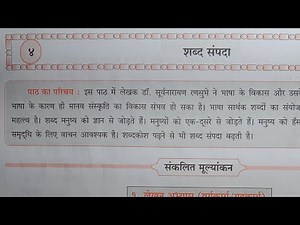 ४
शब्द संपदा
पाठ का परिचय : इस पाठ में लेखक डॉ. सूर्यनारायण रणसुभे ने भाषा के विकास और उसके
भाषा के कारण ही मानव संस्कृति का विकास संभव हो सका है। भाषा सार्थक शब्दों का संयोज
महत्त्व है। शब्द मनुष्य को ज्ञान से जोड़ते हैं। मनुष्यों को एक-दूसरे से जोड़ते हैं। मनुष्य को हँस
समृद्धि के लिए वाचन आवश्यक है। शब्दकोश पढ़ने से भी शब्द संपदा बढ़ती है।
संकलित मूल्यांकन
१. लेखन अभ्यास